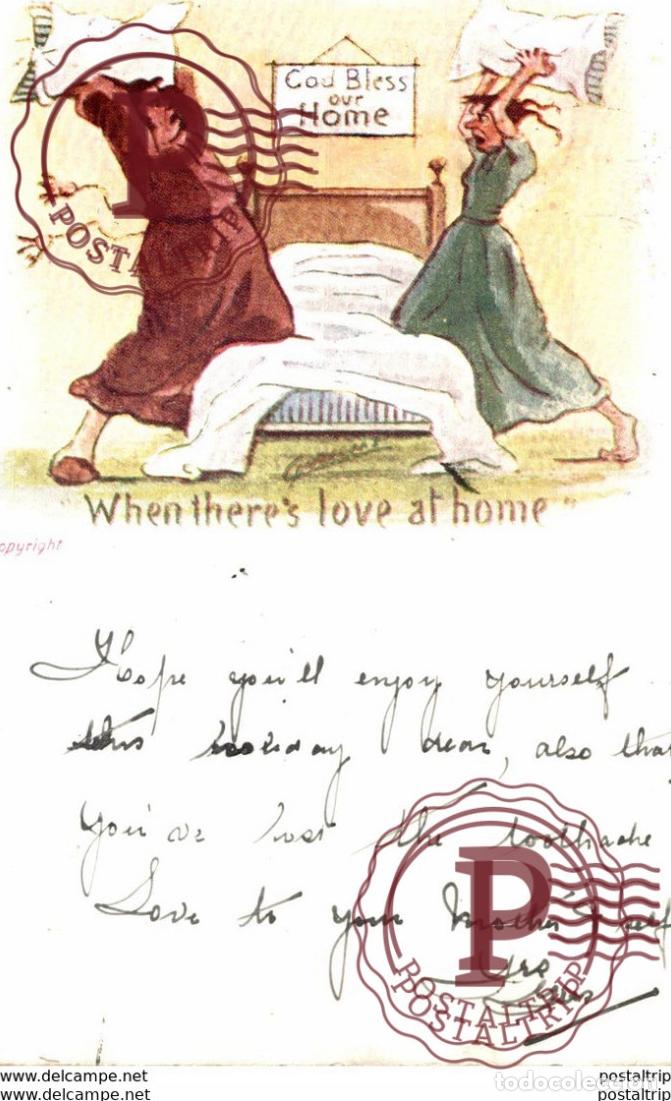 God Bless
our
Home
"When there's love at home"
opyright
Hope you'll enjoy yourself
this holiday dear, also that
you've lost the toothache
Love to your Mother & self
P
POSTALTRIP
P
POSTALTRIP
POSTALTRIP
www.delcampe.net
postaltrip
todocoleccion
www.delcampe.net
postaltrip